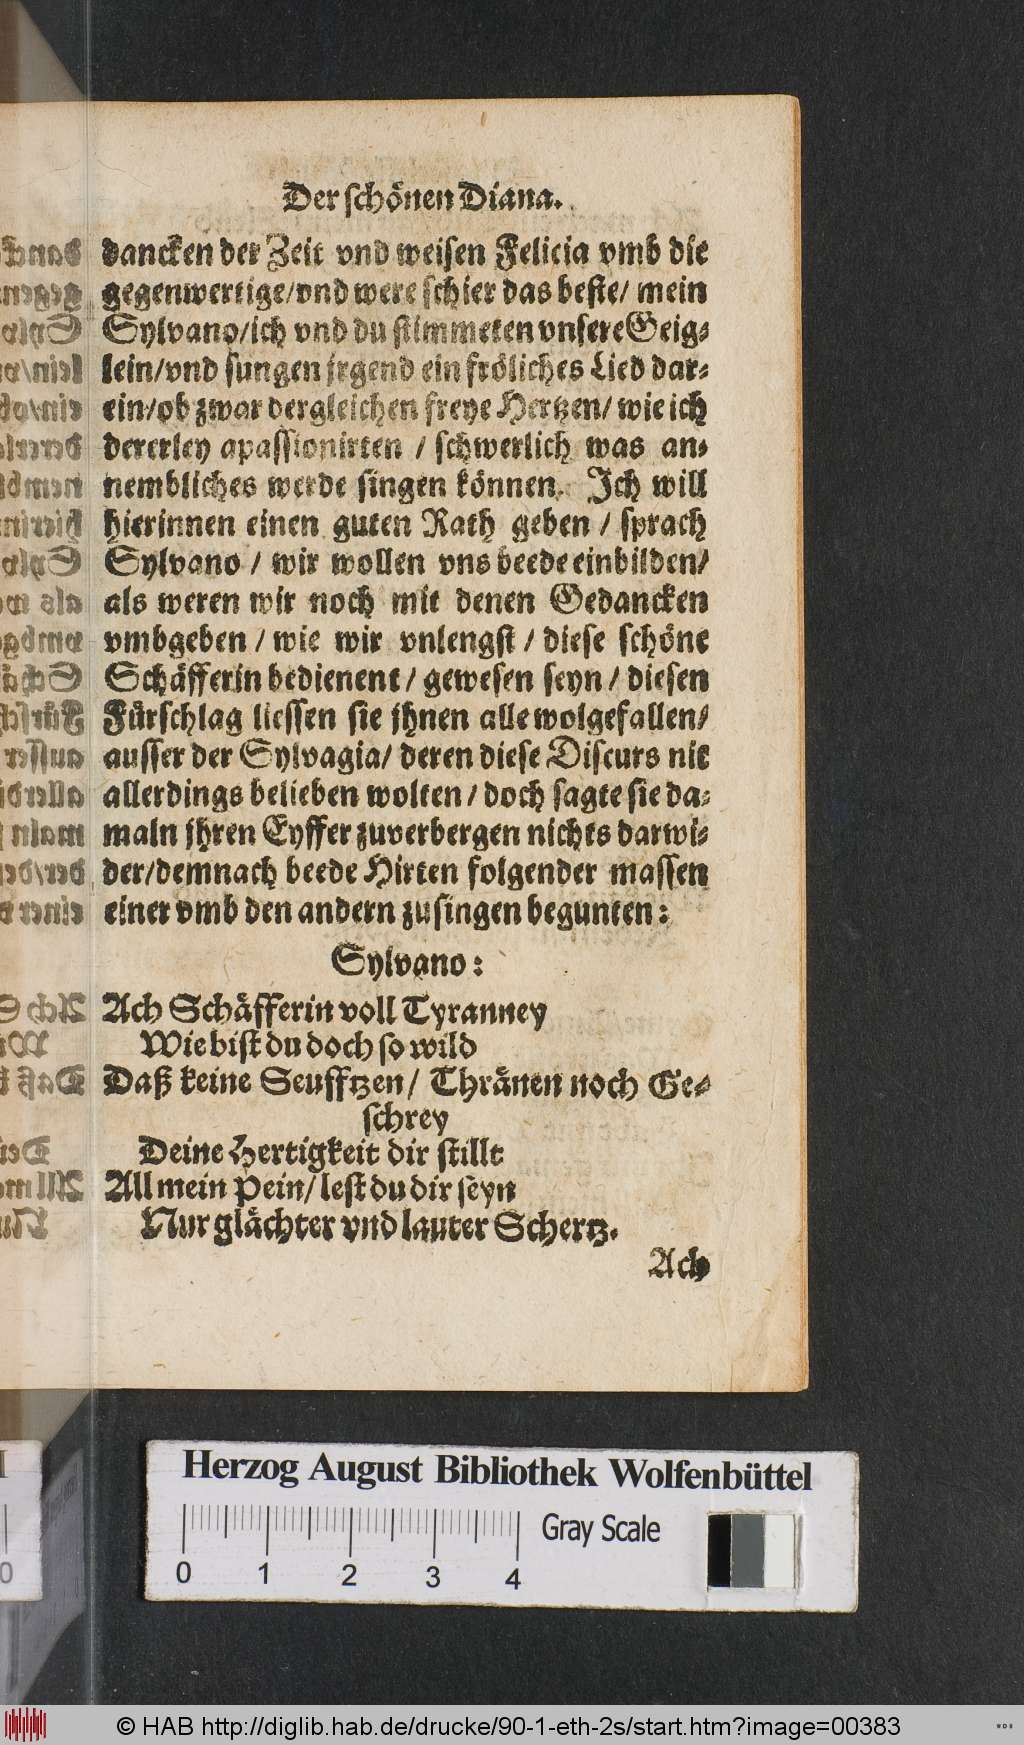 Der schönen Diana.
dancken der Zeit vnd weisen Felicia vmb die
gegenwertige/vnd were schier das beste/ mein
Sylvano/ich vnd du stimmeten vnsere Geig-
lein/vnd sungen jrgend ein fröliches Lied dar-
ein/ob zwar dergleichen freye Hertzen/ wie ich
dererley apassionirten / schwerlich was an-
nembliches werde singen können. Ich will
hierinnen einen guten Rath geben / sprach
Sylvano / wir wollen vns beede einbilden/
als weren wir noch mit denen Gedancken
vmbgeben / wie wir vnlengst / diese schöne
Schäfferin bedienent/ gewesen seyn / diesen
Fürschlag liessen sie jhnen alle wolgefallen/
ausser der Sylvagia/ deren diese Discurs nit
allerdings belieben wolten / doch sagte sie da-
maln jhren Eyffer zuverbergen nichts darwi-
der/demnach beede Hirten folgender massen
einer vmb den andern zusingen begunten:
Sylvano:
Ach Schäfferin voll Tyranney
Wie bist du doch so wild
Daß keine Seufftzen/ Thränen noch Ge-
schrey
Deine Hertigkeit dir stillt
All mein Pein/ lest du dir seyn
Nur glächter vnd lauter Schertz.
Ach
Herzog August Bibliothek Wolfenbüttel
Gray Scale
0 1 2 3 4
© HAB http://diglib.hab.de/drucke/90-1-eth-2s/start.htm?image=00383